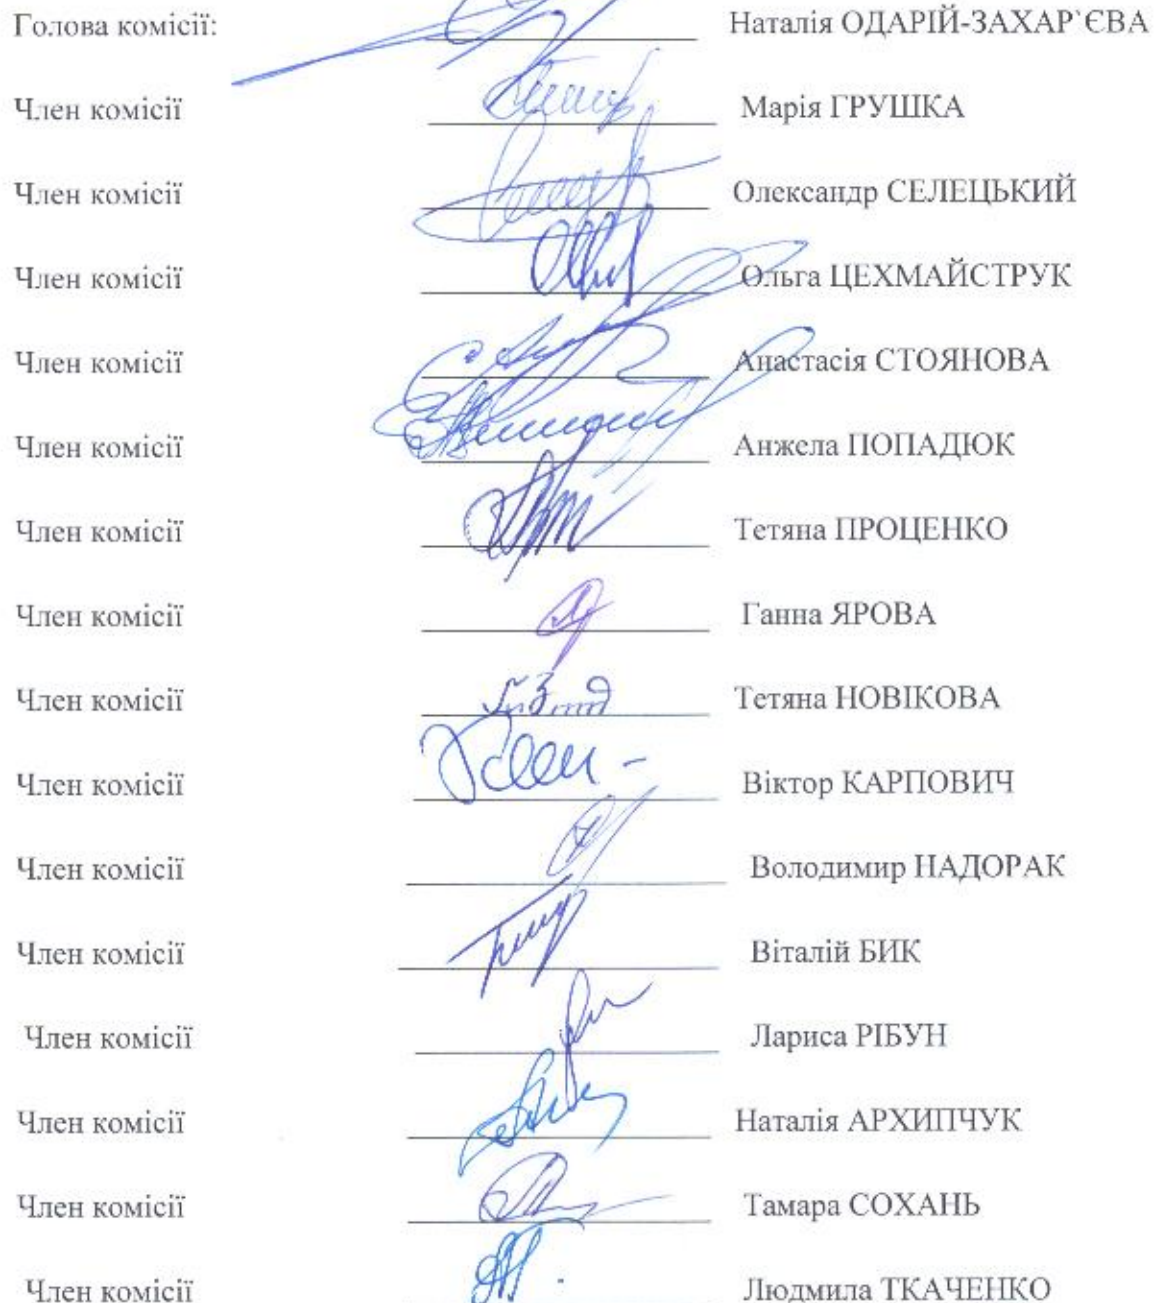 Голова комісії: Наталія ОДАРІЙ-ЗАХАР`ЄВА
Член комісії Марія ГРУШКА
Член комісії Олександр СЕЛЕЦЬКИЙ
Член комісії Ольга ЦЕХМАЙСТРУК
Член комісії Анастасія СТОЯНОВА
Член комісії Анжела ПОПАДЮК
Член комісії Тетяна ПРОЦЕНКО
Член комісії Ганна ЯРОВА
Член комісії Тетяна НОВІКОВА
Член комісії Віктор КАРПОВИЧ
Член комісії Володимир НАДОРАК
Член комісії Віталій БИК
Член комісії Лариса РІБУН
Член комісії Наталія АРХИПЧУК
Член комісії Тамара СОХАНЬ
Член комісії Людмила ТКАЧЕНКО